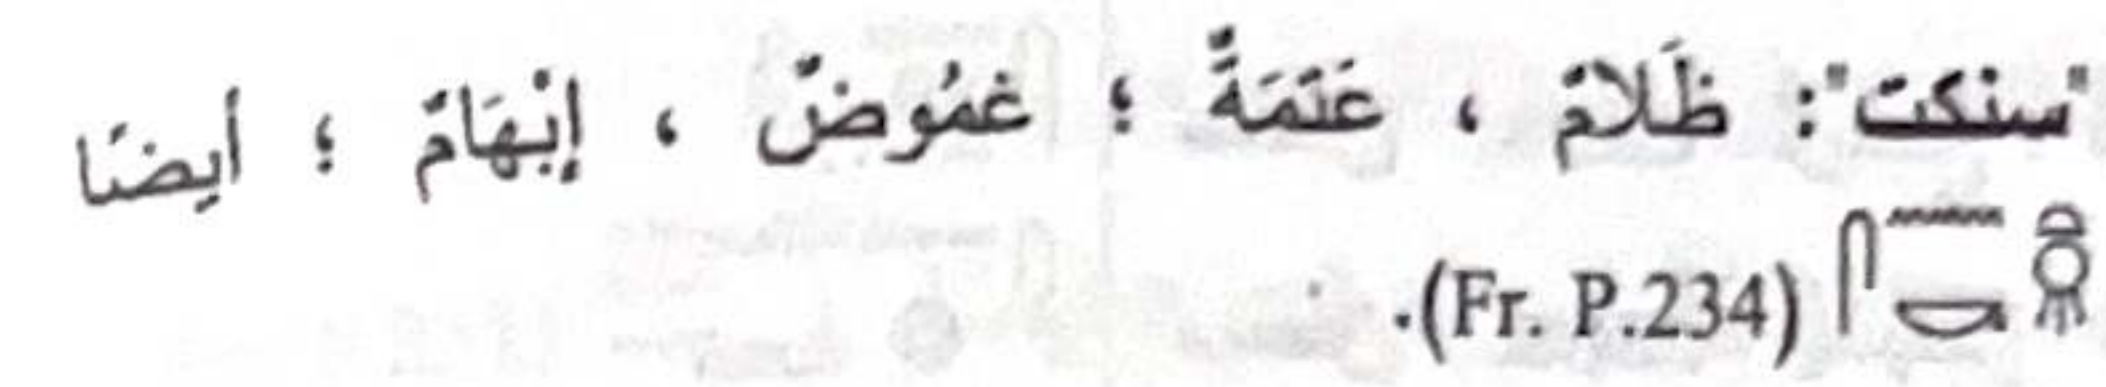 "سنكت": ظَلَامٌ ، عَتَمَةٌ ؛ غمُوضٌ ، إبْهَامٌ ؛ أيضًا
(Fr. P.234).